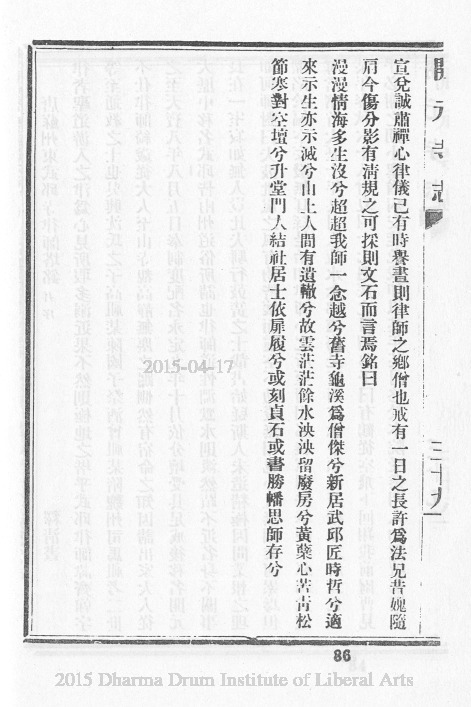 開元寺志
三十九
宣兌誠肅禪心律儀已有時譽晝則律師之鄉僧也戒有一日之長許爲法兄昔媿隨
肩今傷分影有清規之可採則文石而言焉銘曰
漫漫情海多生沒兮超超我師一念越兮舊寺龜溪爲僧傑兮新居武邱匠時哲兮適
來示生亦示滅兮山上人間有遺轍兮故雲茫茫餘水泱泱留廢房兮黃蘗心苦靑松
節寒對空壇兮升堂門人結社居士依扉履兮或刻貞石或書勝幡思師存兮
2015-04-17
86
2015 Dharma Drum Institute of Liberal Arts